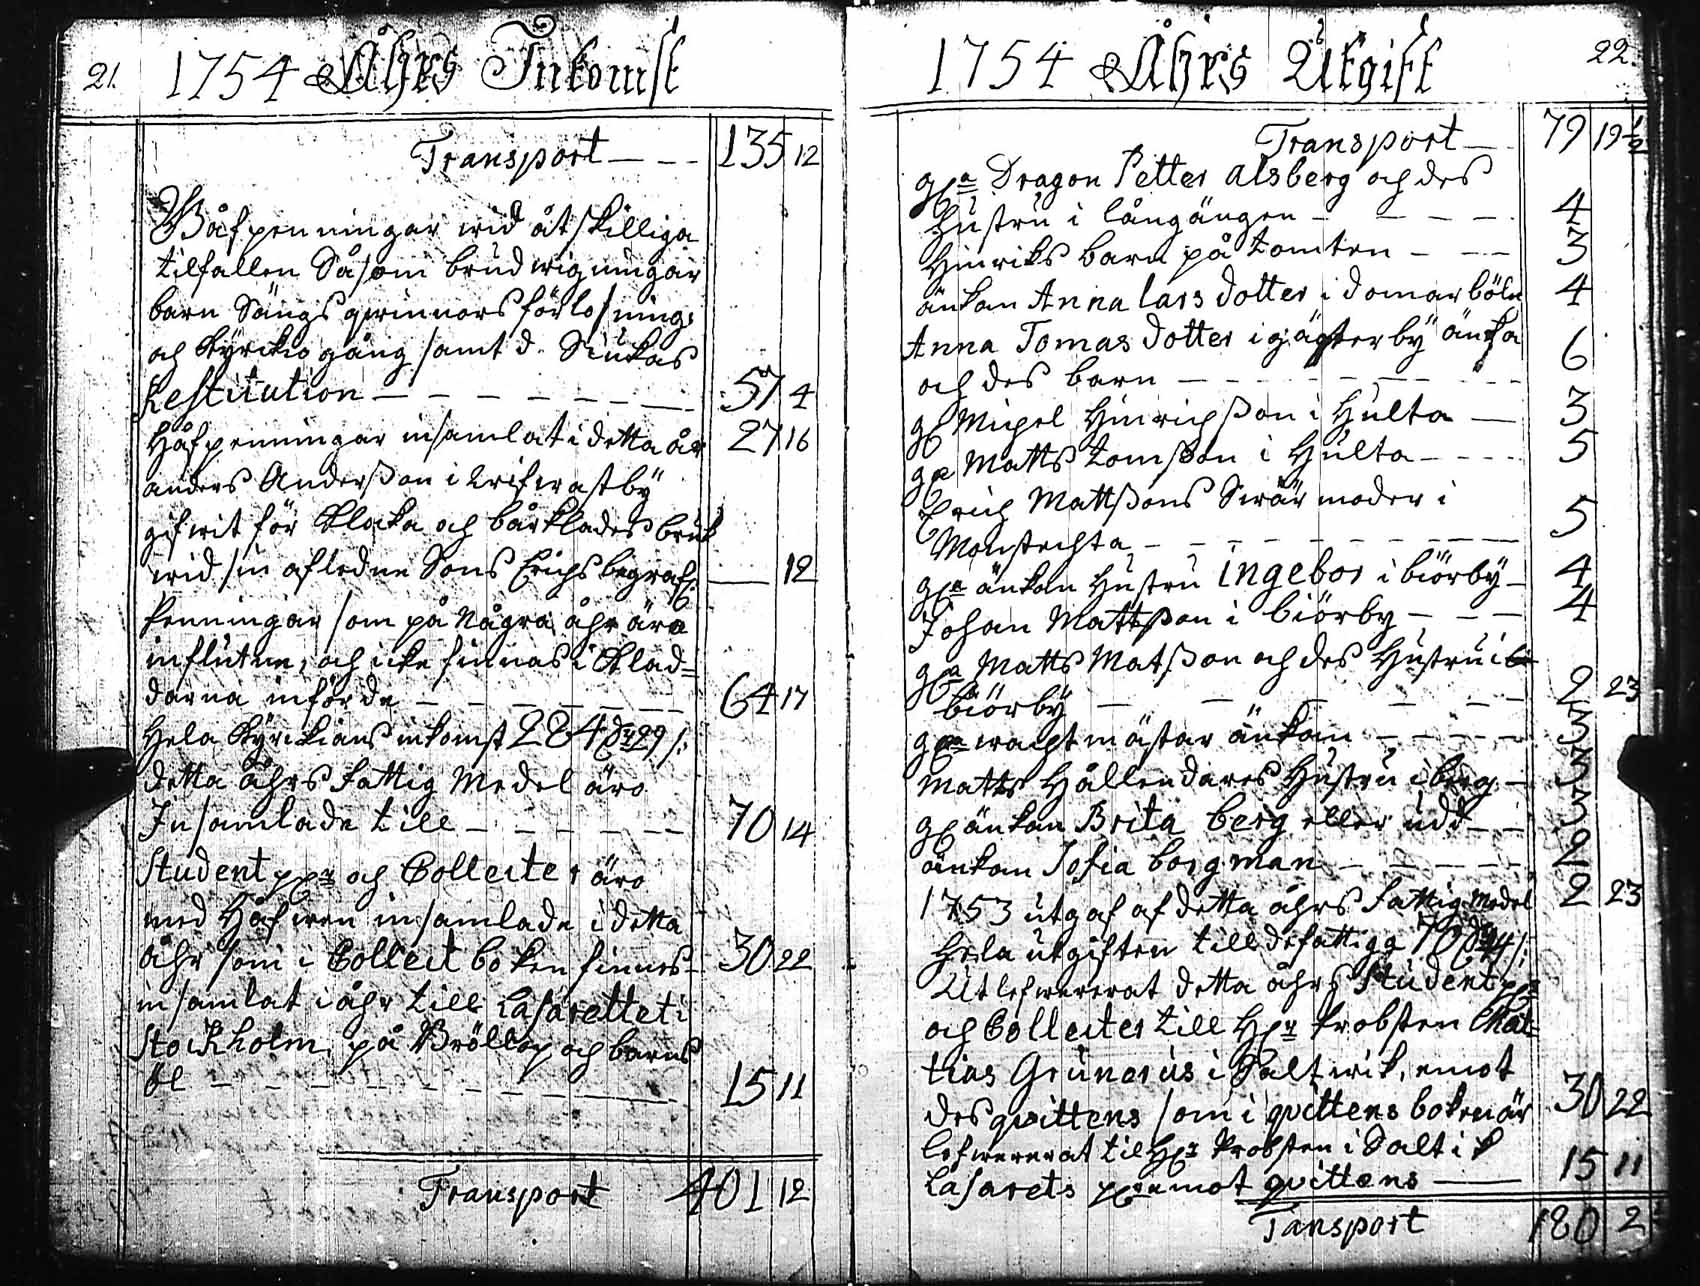 21. 1754 Åhrs Inkomst
Transport — — 135 12
Håfpenningar wid åtskilliga
tilfällen Såsom brudwigningar
barn Sängs qwinnors förlossning
och Kyrkiogång samt d. Siukas
Restitution — — — — — — 57 4
Håfpenningar insamlat i detta år 27 16
anders Anderßon i
gifwit för Klocka och bårklädes bruk
wid sin afledne Sons Erichs begrafn — 12
Penningar som på några åhr äro
influtne, och icke finnas i Klad=
darna införde — — — — — — 64 17
Hela Kyrckians inkomst 284 dr 29 /:
detta åhrs fattig Medel äro
Insamlade till — — — — — 70 14
Student pgr och Collecter äro
med Håfwen insamlade i detta
åhr som i Collect boken finnes — 30 22
insamlat i åhr till Lasarettet i
Stockholm på Bröllop och barns
öl — — — — — — — — 15 11
Transport 401 12
1754 Åhrs Utgift 22.
Transport — 79 19 1/2
gla Dragon Petter alsberg och des
Hustru i långängen — — — — 4
Hinriks barn på tomten — — — 3
änkan Anna lars dotter i domarböle 4
Anna Tomas dotter i gägterby änka
och des barn — — — — — — 6
gl Michel Hinrichßon i Hulta — 3
gl Matts tomßon i Hulta — — — 5
Erich Mattßons Swär moder i
Monstechta — — — — — — — 5
gla änkan Hustru ingebor i biörby — 4
Johan Mattßon i biörby — — — 4
gla Matts Matßon och des Hustru i
biörby — — — — — — 2 23
gla wachtmästar änkan — — — — 3
Matts Hållendares Hustru i berg — 3
gl änkan Brita berg eller udd — — 3
änkan Sofia borgman — — — — 2
1753 utgaf af detta åhrs fattig medel 2 23
Hela utgiften till de fattiga 70 dr 14 /:
Utlefwererat detta åhrs Student pgr
och Collecter till Hr Probsten Mat=
tias Grunerus i Saltwik, emot
des qwittens som i qwittens boken är 30 22
lefwererat til Hr Probsten i Saltik
Lasarets pgr emot qwittens — 15 11
Tansport 180 2 1/2